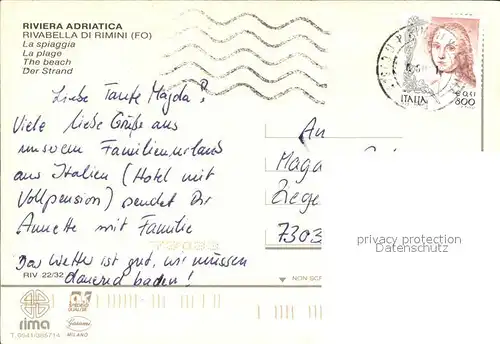 RIVIERA ADRIATICA
RIVABELLA DI RIMINI (FO)
La spiaggia
La plage
The beach
Der Strand
ITALIA
€ 0,41
800
Liebe Tante Magda!
Viele liebe Grüße aus
unserem Familienurlaub
aus Italien (Hotel mit
Vollpension) sendet Dir
Annette mit Familie
Das Wetter ist gut, wir müssen
dauernd baden!
An
Maga
Ziege
7303
73033
privacy protection
Datenschutz
RIV 22/32
NON SCR
rima
T. 0541/385714
MILANO